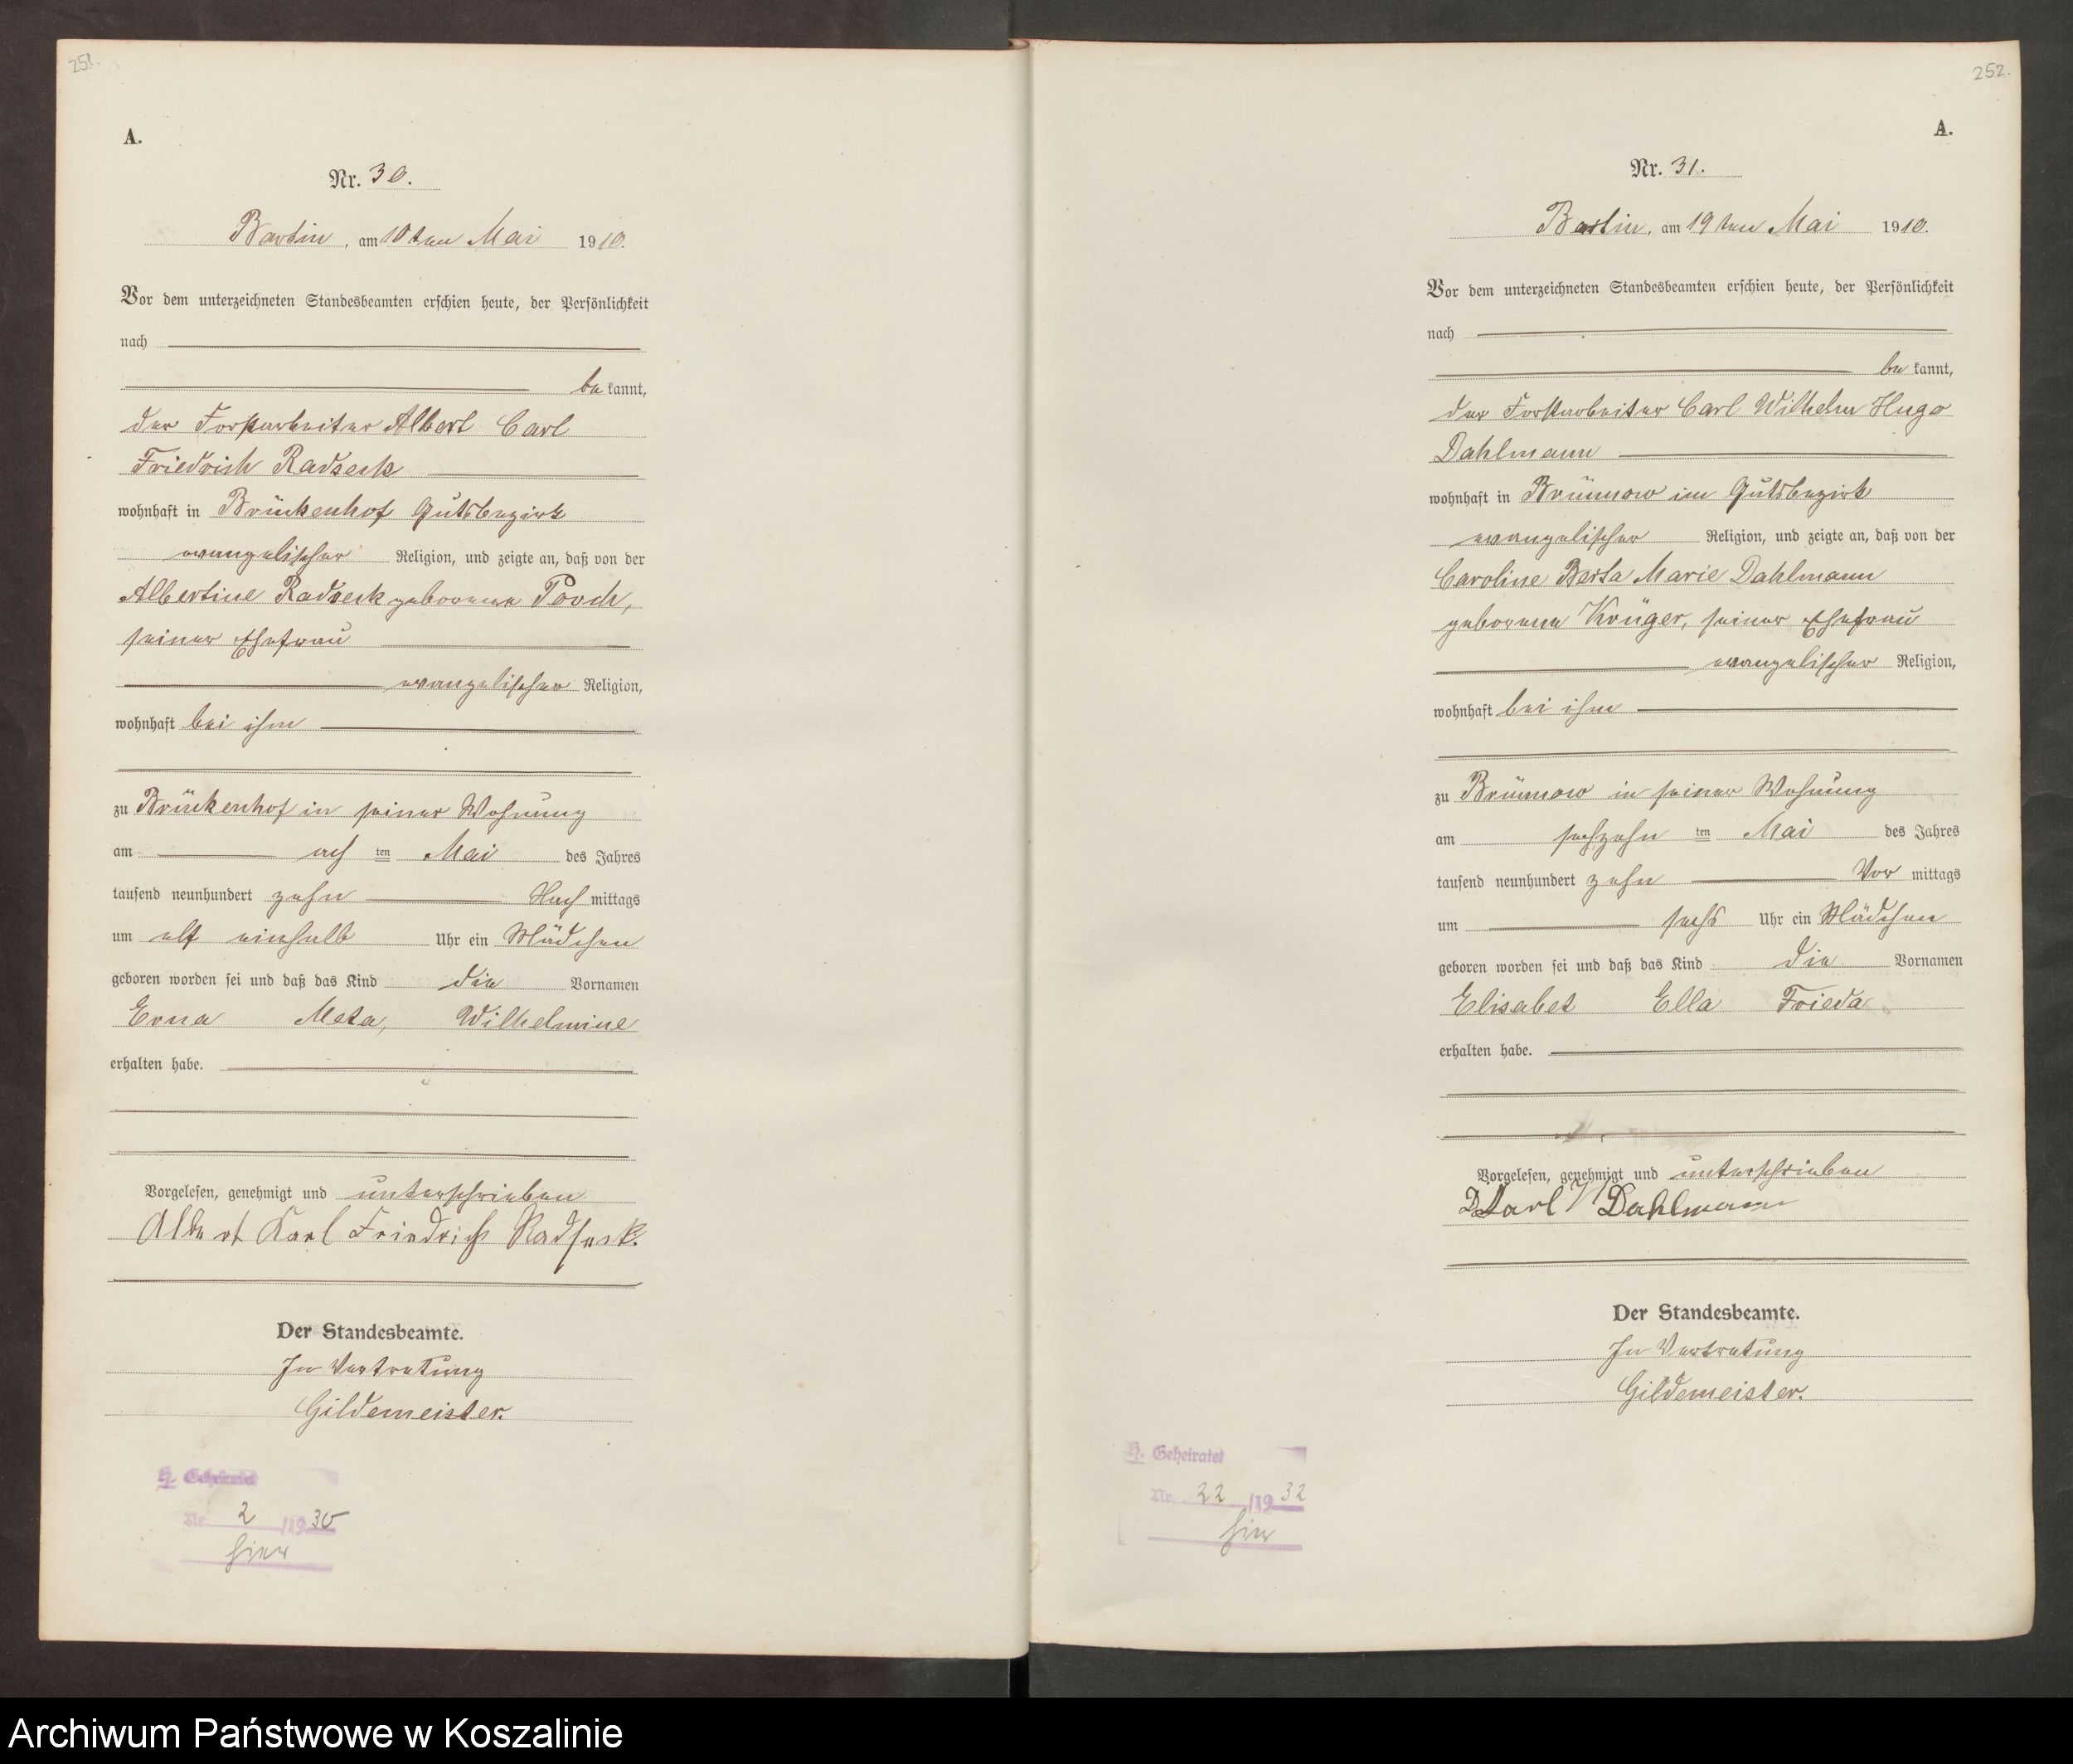 251.
A.
Nr. 30.
Bartin, am 10ten Mai 1910.
Vor dem unterzeichneten Standesbeamten erschien heute, der Persönlichkeit
nach
be kannt,
der Forstarbeiter Albert Carl
Friedrich Radseck
wohnhaft in Brückenhof Gutsbezirk
evangelischer Religion, und zeigte an, daß von der
Albertine Radseck geborene Porch,
seiner Ehefrau
evangelischer Religion,
wohnhaft bei ihm
zu Brückenhof in seiner Wohnung
am ach ten Mai des Jahres
tausend neunhundert zehn Nach mittags
um elf einhalb Uhr ein Mädchen
geboren worden sei und daß das Kind die Vornamen
Erna Meta, Wilhelmine
erhalten habe.
Vorgelesen, genehmigt und unterschrieben
Albert Karl Friedrich Radseck.
Der Standesbeamte.
In Vertretung
Gildemeister.
H. Geheiratet
Nr. 2 /1930
hier
252.
A.
Nr. 31.
Bartin, am 19ten Mai 1910.
Vor dem unterzeichneten Standesbeamten erschien heute, der Persönlichkeit
nach
be kannt,
der Forstarbeiter Carl Wilhelm Hugo
Dahlmann
wohnhaft in Brünnow im Gutsbezirk
evangelischer Religion, und zeigte an, daß von der
Caroline Berta Marie Dahlmann
geborene Krüger, seiner Ehefrau
evangelischer Religion,
wohnhaft bei ihm
zu Brünnow in seiner Wohnung
am sechzehn ten Mai des Jahres
tausend neunhundert zehn Vor mittags
um sechs Uhr ein Mädchen
geboren worden sei und daß das Kind die Vornamen
Elisabet Ella Frieda
erhalten habe.
Vorgelesen, genehmigt und unterschrieben
Karl Dahlmann
Der Standesbeamte.
In Vertretung
Gildemeister.
H. Geheiratet
Nr. 22 /1932
hier
Archiwum Państwowe w Koszalinie